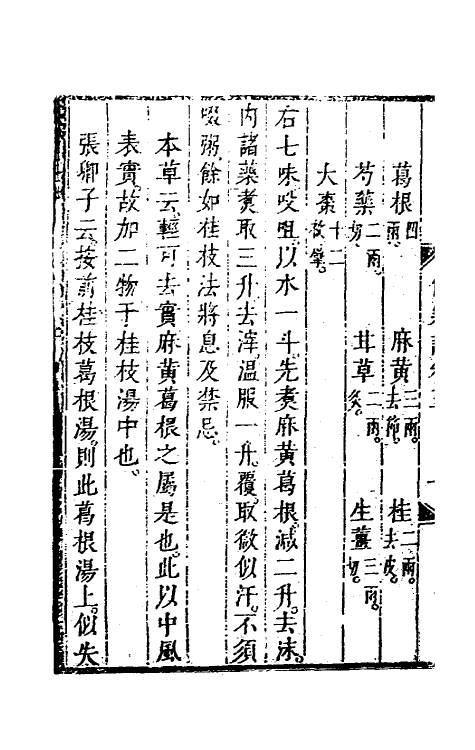 葛根四兩。 麻黃三兩。去節。 桂二兩。去皮。
芍藥二兩。切。 甘草二兩。炙。 生薑三兩。切。
大棗十二枚擘。
右七味㕮咀。以水一斗。先煑麻黃葛根。減二升。去沫。
內諸藥。煑取三升。去滓。溫服一升。覆。取微似汗。不須
啜粥。餘如桂枝法將息及禁忌。
本草云。輕可去實。麻黃葛根之屬是也。此以中風
表實。故加二物于桂枝湯中也。
張卿子云。按前桂枝葛根湯。則此葛根湯上。似失